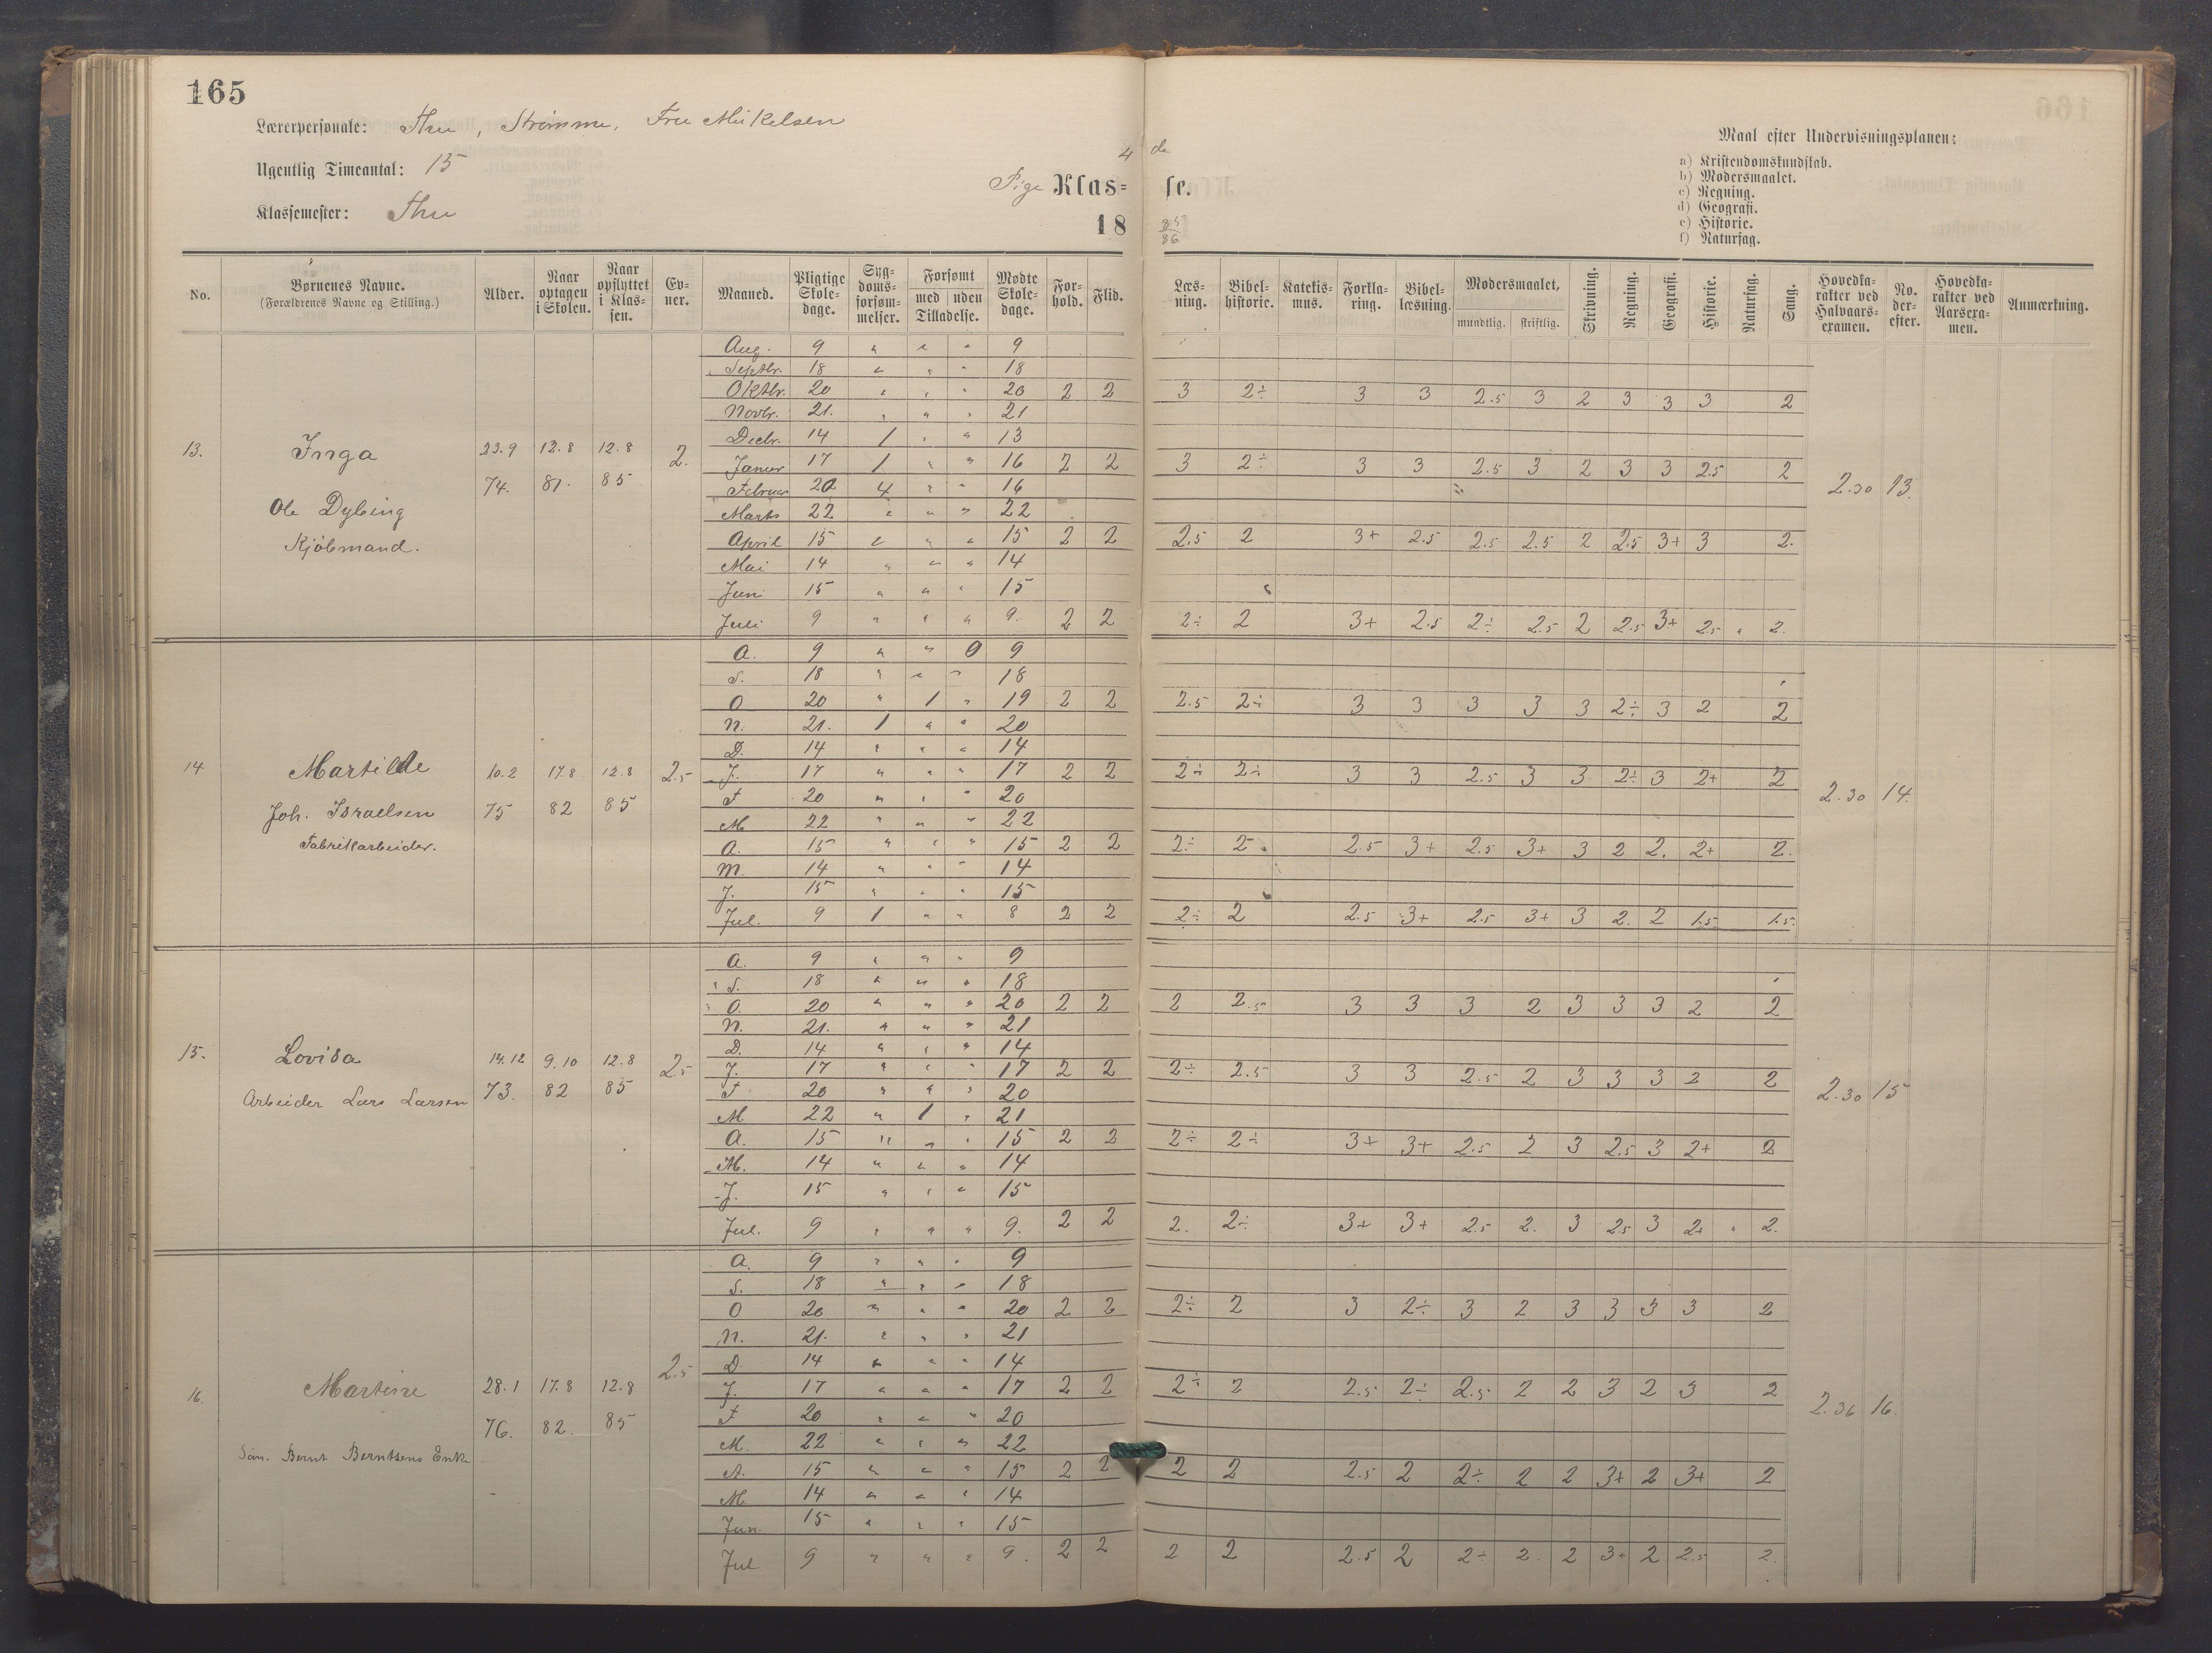 165
Lærerpersonale: Thu, Strømme, Fru Mikelsen
Ugentlig Timeantal: 15
Klassemester: Thu
4de
Pige Klas=se.
18 85/86
Maal efter Undervisningsplanen:
a) Kristendomskundskab.
b) Modersmaalet.
c) Regning.
d) Geografi.
e) Historie.
f) Naturfag.
No. | Børnenes Navne. (Forældrenes Navne og Stilling.) | Alder. | Naar optagen i Skolen. | Naar opflyttet i Klas-sen. | Ev-ner. | Maaned. | Pligtige Skole-dage. | Syg-doms-forsøm-melser. | Forsømt med uden Tilladelse. | Mødte Skole-dage. | For-hold. | Flid. | Læs-ning. | Bibel-historie. | Katekis-mus. | Forkla-ring. | Bibel-læsning. | Modersmaalet, mundtlig. skriftlig. | Skrivning. | Regning. | Geografi. | Historie. | Naturfag. | Sang. | Hovedka-rakter ved Halvaars-examen. | No. der-efter. | Hovedka-rakter ved Aarsexa-men. | Anmærkning.
Aug. 9 " " " 9
Septbr. 18 " " " 18
Oktbr. 20 " " " 20 2 2 3 2÷ 3 3 2.5 3 2 3 3 3 2
Novbr. 21. " " " 21
Decbr. 14 1 " " 13
13. Inga 23.9 12.8 12.8 2.
Januar 17 1 " " 16 2 2 3 2÷ 3 3 2.5 3 2 3 3 2.5 2
74. 81. 85
Februar 20 4 " " 16 2.30 13.
Ole Dybing
Marts 22 " " " 22
Kjøbmand.
April 15 " " " 15 2 2 2.5 2 3+ 2.5 2.5 2.5 2 2.5 3+ 3 2.
Mai 14 " " " 14
Juni 15 " " " 15
Juli 9 " " " 9. 2 2 2÷ 2 3+ 2.5 2÷ 2.5 2 2.5 3+ 2.5 " 2.
A. 9 " " 0 9
S. 18 " " " 18
O 20 " 1 " 19 2 2 2.5 2÷ 3 3 3 3 3 2÷ 3 2 2
N. 21. 1 " " 20
D. 14 " " " 14
14 Martilde 10.2 17.8 12.8 2.5
J. 17 " " " 17 2 2 2÷ 2÷ 3 3 2.5 3 3 2÷ 3 2+ 2
Joh. Israelsen 75 82 85
F 20 " " " 20 2.30 14.
M 22 " " " 22
Fabrikarbeider.
A. 15 " " " 15 2 2 2÷ 2. 2.5 3+ 2.5 3+ 3 2 2. 2+ 2.
M. 14 " " " 14
J. 15 " " " 15
Jul. 9 1 " " 8 2 2 2÷ 2 2.5 3+ 2.5 3+ 3 2. 2 1.5 1.5
A. 9 " " " 9
S. 18 " " " 18
O. 20 " " " 20 2 2 2 2.5 3 3 3 2 3 3 3 2 2
N. 21. " " " 21
D. 14 " " " 14
15. Lovisa 14.12 9.10 12.8 2.5
J. 17 " " " 17 2 2 2÷ 2.5 3 3 2.5 2 3 3 3 2 2
Arbeider Lars Larsen 73. 82 85
F 20 " " " 20 2.30 15
M 22 " 1 " 21
A. 15 " " " 15 2 2 2÷ 2÷ 3+ 3+ 2.5 2 3 2.5 3 2+ 2
M. 14 " " " 14
J. 15 " " " 15
Jul. 9 " " " 9. 2 2 2. 2÷ 3+ 3+ 2.5 2. 3 2.5 3 2+ " 2.
A. 9 " " " 9
S. 18 " " " 18
O 20 " " " 20 2 2 2÷ 2 3 2÷ 3 2 3 3 3 3 2
N. 21. " " " 21
D 14 " " " 14
16. Martine 28.1 17.8 12.8 2.5
J. 17 " " " 17 2 2 2÷ 2 2.5 2÷ 2.5 2 2 3 2 3 2
76. 82. 85
F 20 " " " 20 2.36 16.
M. 22 " " " 22
Bernt Berntsens Enke
A. 15 " " " 15 2 2 2 2 2.5 2 2÷ 2 2 3+ 2 3+ 2
M. 14 " " " 14
Jun. 15 " " " 15
Jul 9 " " " 9. 2 2 2 2 2.5 2 2÷ 2. 2 3+ 2 2.5 2.